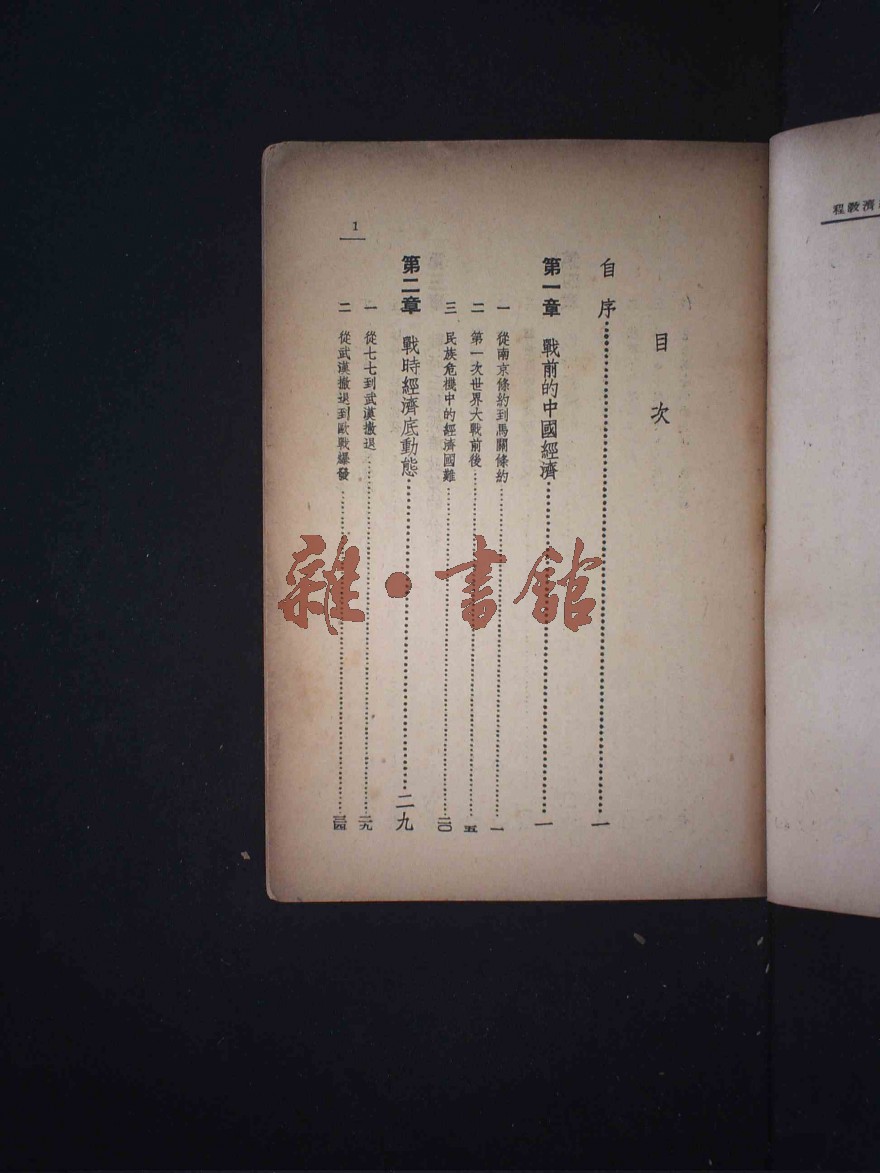 程教濟
目次
自序……一
第一章 戰前的中國經濟……一
一 從南京條約到馬關條約……一
二 第一次世界大戰前後……五
三 民族危機中的經濟國難……二〇
第二章 戰時經濟底動態……二九
一 從七七到武漢撤退……二九
二 從武漢撤退到歐戰爆發……三四
1
雜·書館